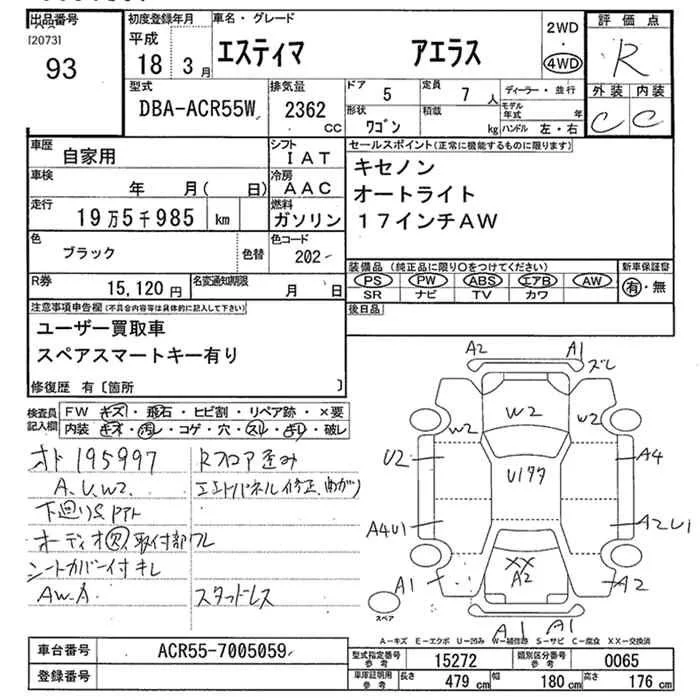 出品番号
[2073]
93
初度登録年月
平成
18 3 月
車名・グレード
エスティマ アエラス
2WD
4WD
評価点
R
型式
DBA-ACR55W
排気量
2362
CC
ドア
5
定員
7 人
形状
ワゴン
積載
kg
ディーラー・並行
モデル年式 年
ハンドル 左・右
外装 内装
C C
車歴
自家用
シフト
IAT
車検
年 月( 日)
冷房
AAC
走行
19万5千985 km
燃料
ガソリン
色
ブラック
色替
色コード
202-
R券
15,120 円
名変通知期限
月 日
セールスポイント(正常に機能するものに限ります)
キセノン
オートライト
17インチAW
装備品 (純正品に限り○をつけてください)
PS PW ABS エアB AW
SR ナビ TV カワ
新車保証書
有・無
後日品
注意事項申告欄(不具合内容等は具体的に記入して下さい)
ユーザー買取車
スペアスマートキー有り
修復歴 有〔箇所 〕
検査員記入欄
FW キズ・飛石・ヒビ割・リペア跡・×要
内装 キズ・汚レ・コゲ・穴・スレ・ヨレ・破レ
オド 195997
Rフロア歪み
A.U.W2.
エンドパネル修正.曲がり
オーディオ欠取付部ワレ
シートカバー付キレ
AW.A
スタッドレス
A2 A1 ズレ
W2
W2 W2
U2 A4
Uワク
A4U1 A2U1
XX
A2
A1 A2
A1 A1
スペア
A-キズ E-エクボ U-凹み W-補修跡 S-サビ C-腐食 XX-交換済
車台番号
ACR55-7005059
登録番号
型式指定番号
参考
15272
類別区分番号
参考
0065
車庫証明用
参考
長さ 479 cm
幅 180 cm
高さ 176 cm